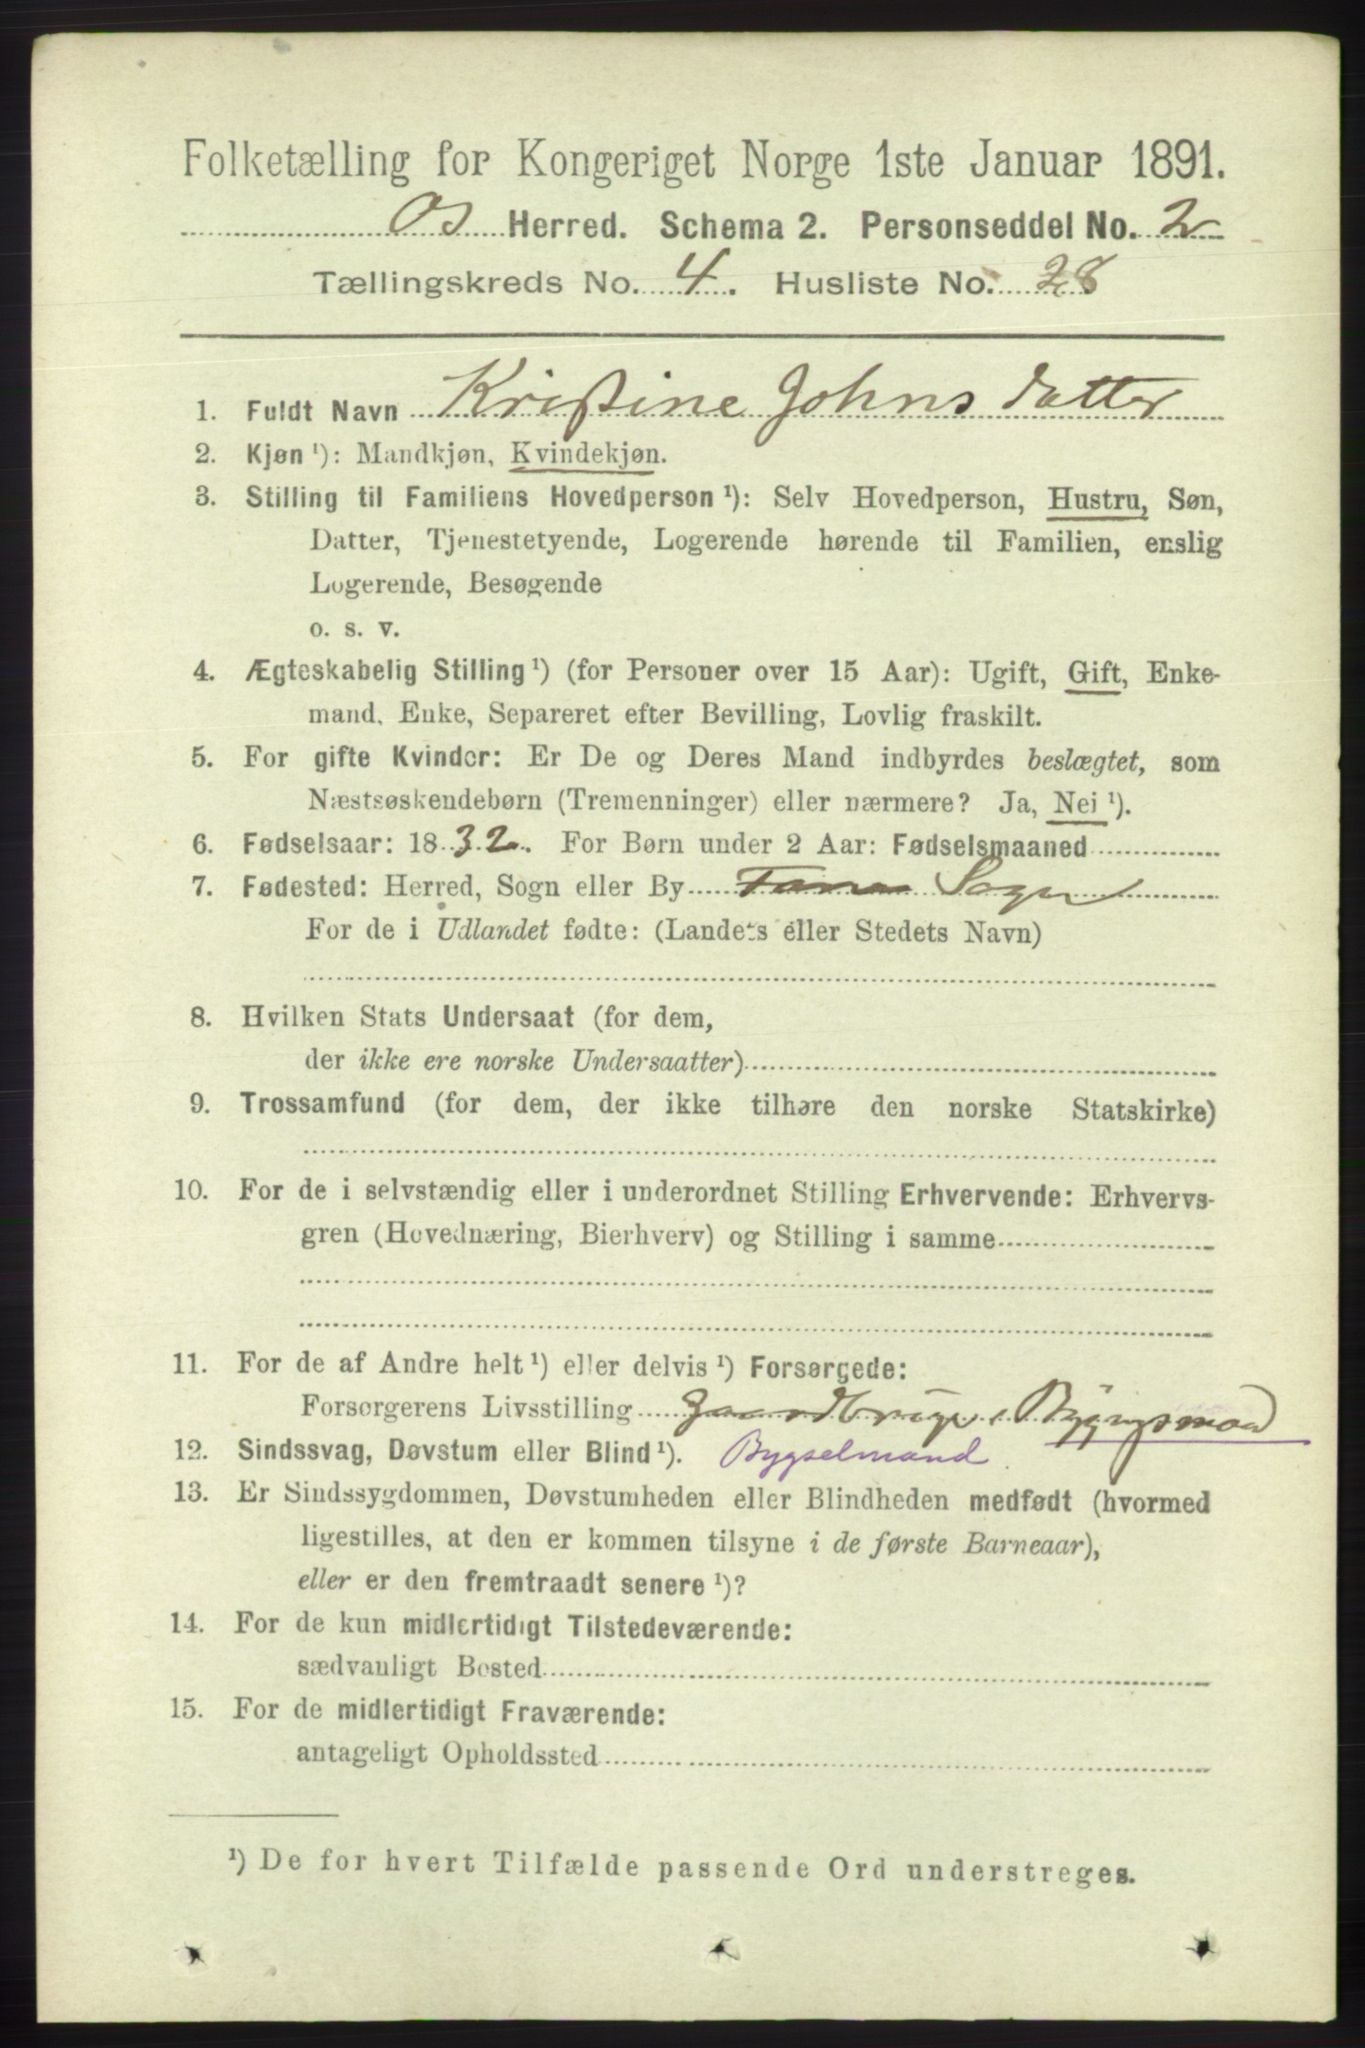 Folketælling for Kongeriget Norge 1ste Januar 1891.
Os Herred. Schema 2. Personseddel No. 2
Tællingskreds No. 4. Husliste No. 28
1. Fuldt Navn Kristine Johnsdatter
2. Kjøn ¹): Mandkjøn, Kvindekjøn.
3. Stilling til Familiens Hovedperson ¹): Selv Hovedperson, Hustru, Søn,
Datter, Tjenestetyende, Logerende hørende til Familien, enslig
Logerende, Besøgende
o. s. v.
4. Ægteskabelig Stilling ¹) (for Personer over 15 Aar): Ugift, Gift, Enke-
mand, Enke, Separeret efter Bevilling, Lovlig fraskilt.
5. For gifte Kvinder: Er De og Deres Mand indbyrdes beslægtet, som
Næstsøskendebørn (Tremenninger) eller nærmere? Ja, Nei ¹).
6. Fødselsaar: 1832. For Børn under 2 Aar: Fødselsmaaned
7. Fødested: Herred, Sogn eller By Sogn
For de i Udlandet fødte: (Landets eller Stedets Navn)
8. Hvilken Stats Undersaat (for dem,
der ikke ere norske Undersaatter)
9. Trossamfund (for dem, der ikke tilhøre den norske Statskirke)
10. For de i selvstændig eller i underordnet Stilling Erhvervende: Erhvervs-
gren (Hovednæring, Bierhverv) og Stilling i samme
11. For de af Andre helt ¹) eller delvis ¹) Forsørgede:
Forsørgerens Livsstilling
12. Sindssvag, Døvstum eller Blind ¹). Bygselmand
13. Er Sindssygdommen, Døvstumheden eller Blindheden medfødt (hvormed
ligestilles, at den er kommen tilsyne i de første Barneaar),
eller er den fremtraadt senere ¹)?
14. For de kun midlertidigt Tilstedeværende:
sædvanligt Bosted
15. For de midlertidigt Fraværende:
antageligt Opholdssted
¹) De for hvert Tilfælde passende Ord understreges.